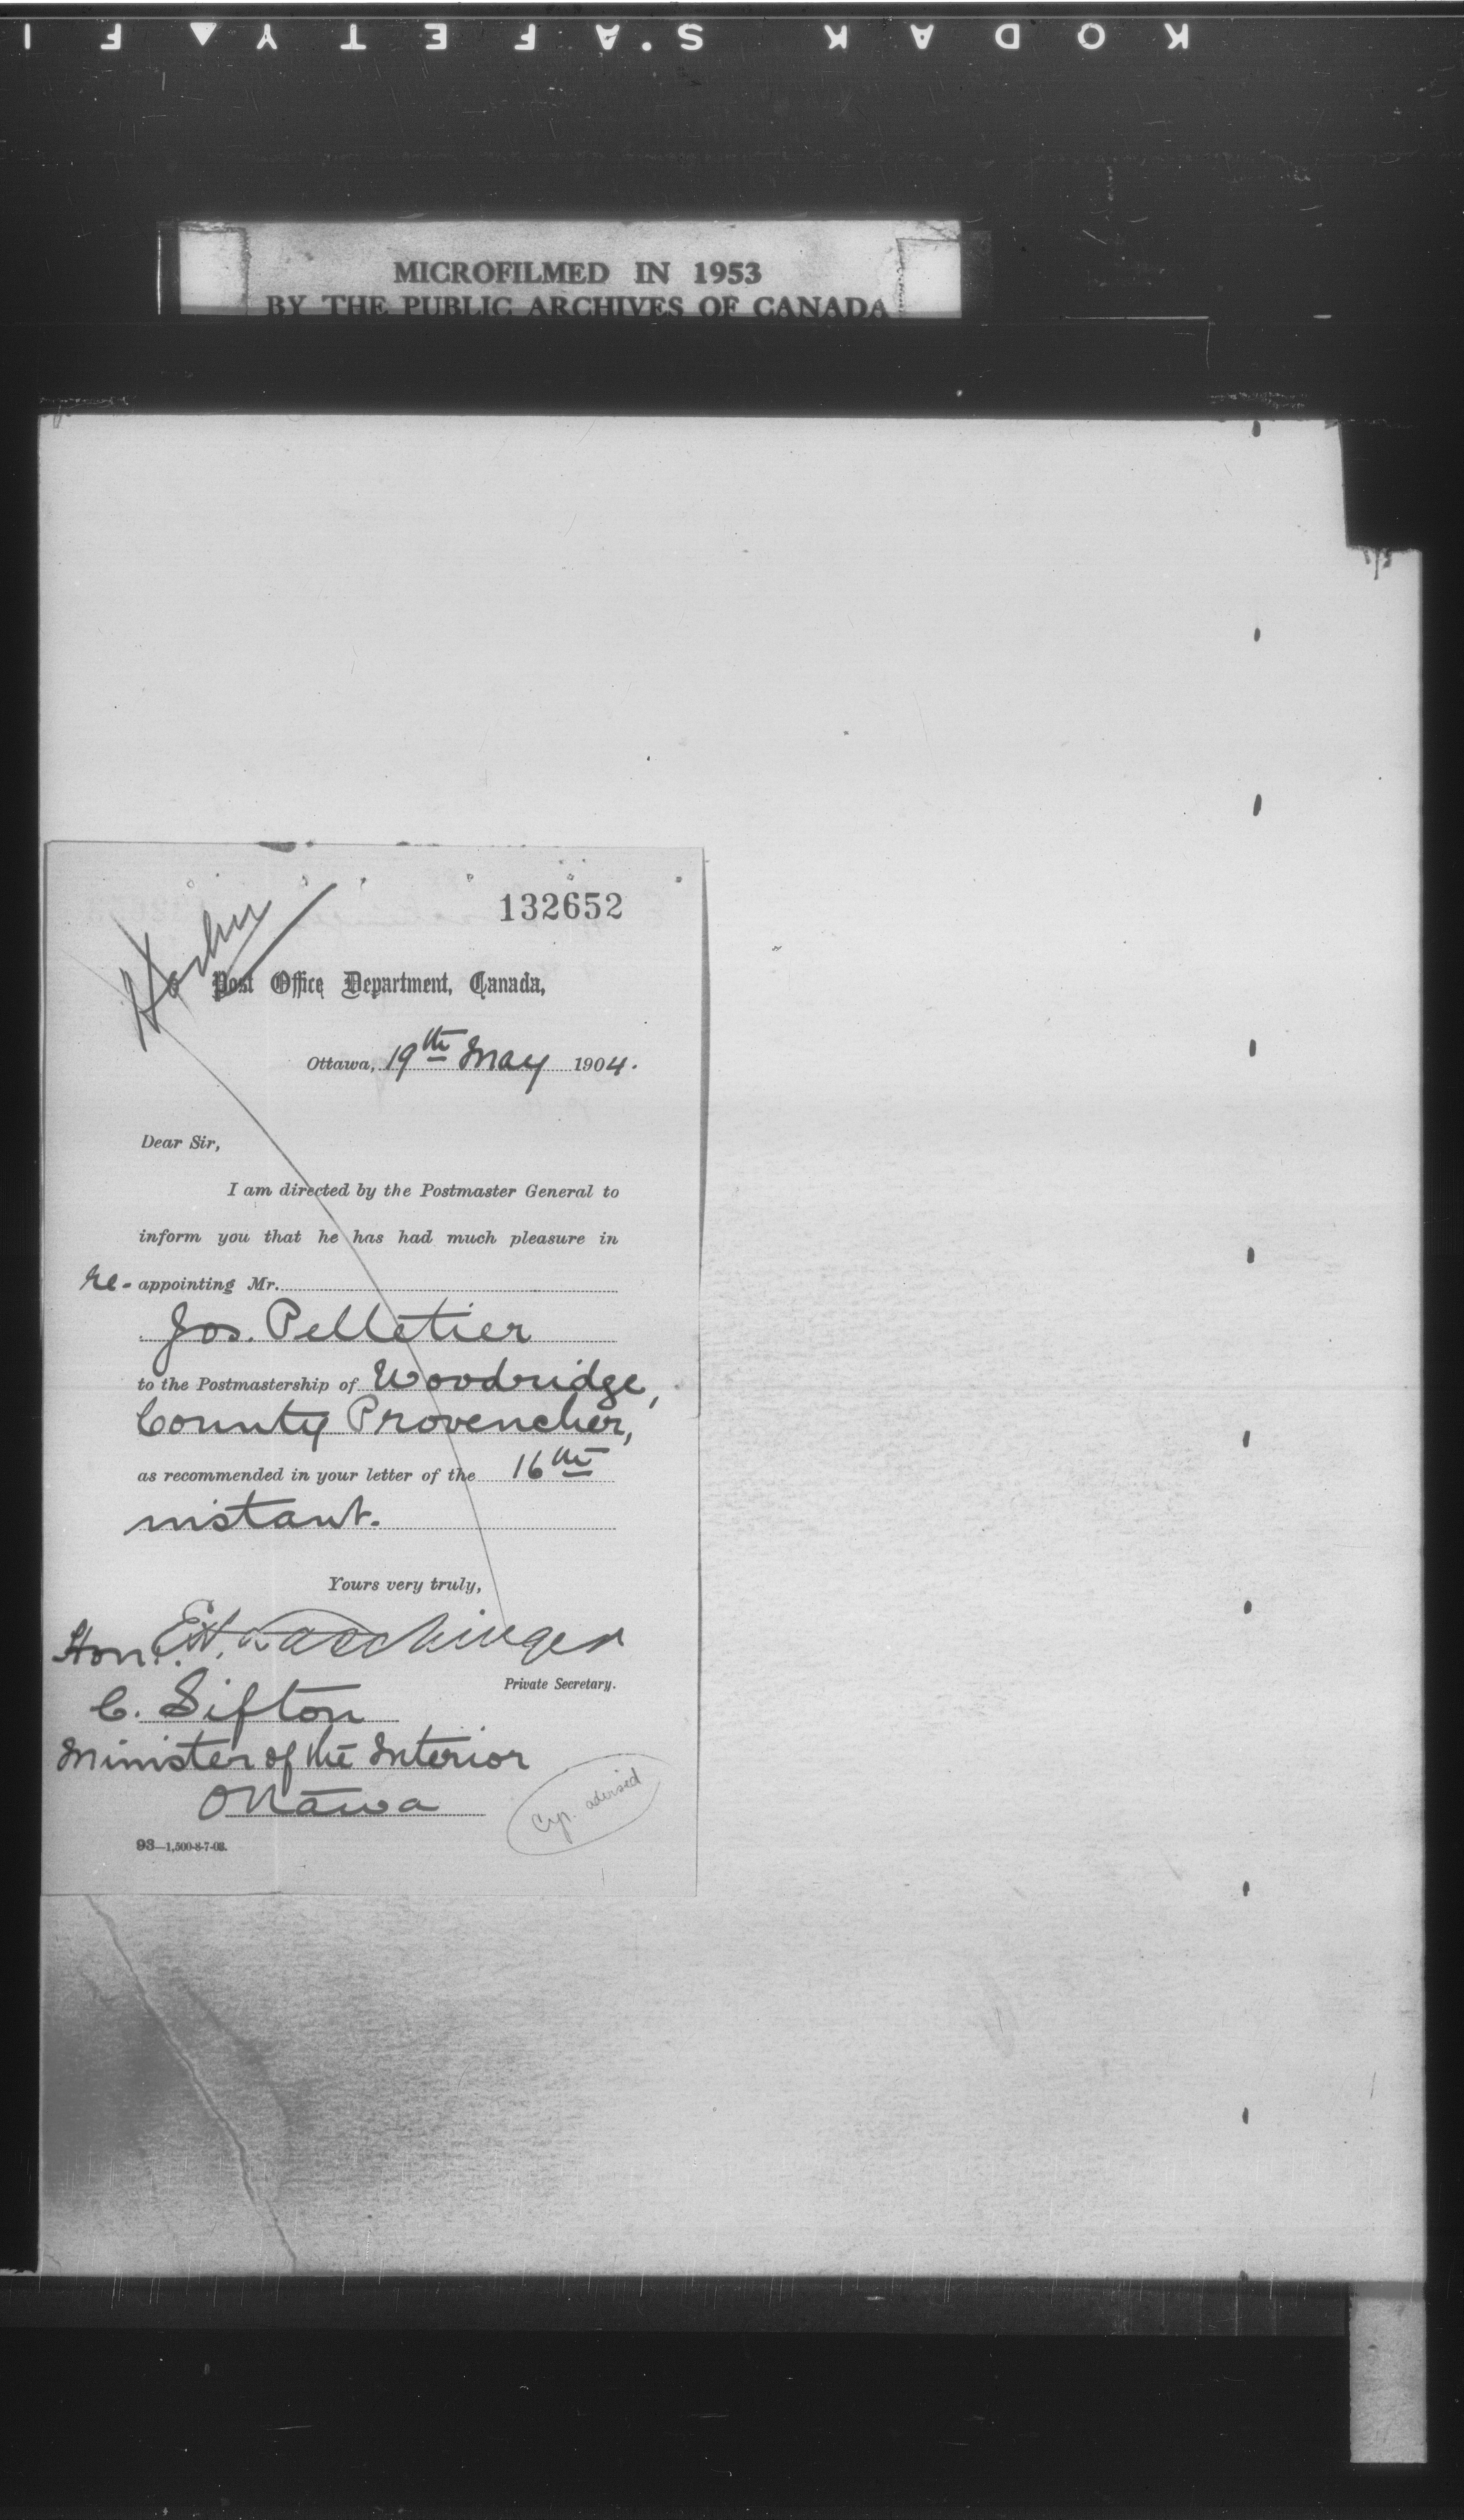 KODAK SAFETY FI
MICROFILMED IN 1953
BY THE PUBLIC ARCHIVES OF CANADA
132652
Post Office Department, Canada,
Ottawa, 19th May 1904.
Dear Sir,
I am directed by the Postmaster General to
inform you that he has had much pleasure in
re-appointing Mr.
Jos. Pelletier
to the Postmastership of Woodbridge,
County Provencher,
as recommended in your letter of the 16th
instant.
Yours very truly,
Hon.
Private Secretary.
C. Sifton
Minister of the Interior
Ottawa
advised
93—1,500-8-7-03.